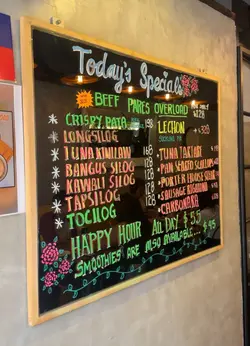 Today's Specials
BEEF PARES OVERLOAD $128
* CRISPY PATA 198
LECHON
* LONGSILOG 168
* TUNA KINILAW 160
* TUNA TARTARE
* BANGUS SILOG 138
* KAWALI SILOG
* PORTER HOUSE STEAK
* TAPSILOG 128
* SAUSAGE RIGATONI
* TOCILOG
* CARBONARA
HAPPY HOUR ALL DAY $55
* SMOOTHIES ARE ALSO AVAILABLE... $45